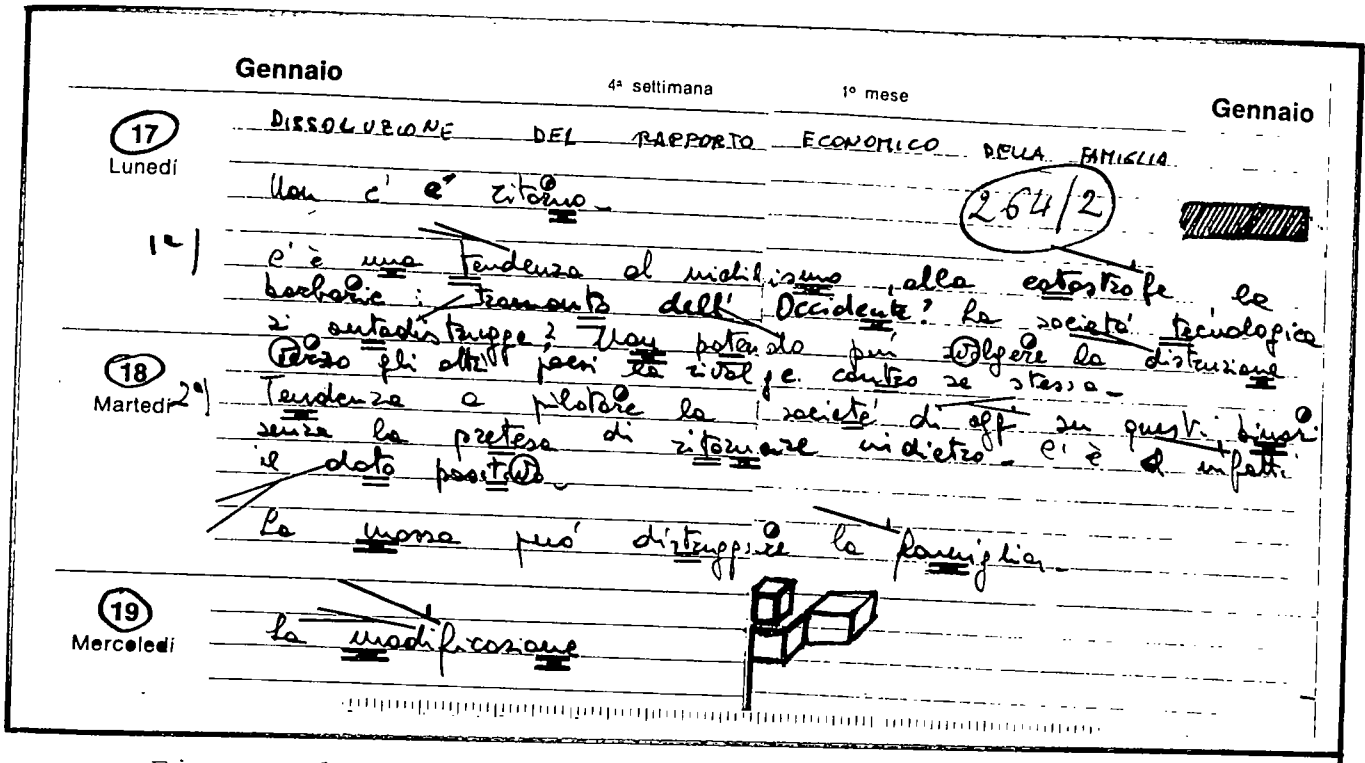 Gennaio 4ª settimana 1º mese Gennaio
17 DISSOLUZIONE DEL RAPPORTO ECONOMICO DELLA FAMIGLIA
Lunedí
Non c' è ritorno_
264/2
1º) C'è una Tendenza al nichilismo, alla catastrofe la
barbarie: tramonto dell' Occidente? La società tecnologica
si autodistrugge? Non potendo più volgere la distruzione
verso gli altri paesi la rivolge contro se stessa_
18
Martedí 2º) Tendenza a pilotare la società di off su questi binari
senza la pretesa di ritornare indietro_ C'è infatti
il dato positivo_
La mossa può distruggere la famiglia_
19
Mercoledí La modificazione